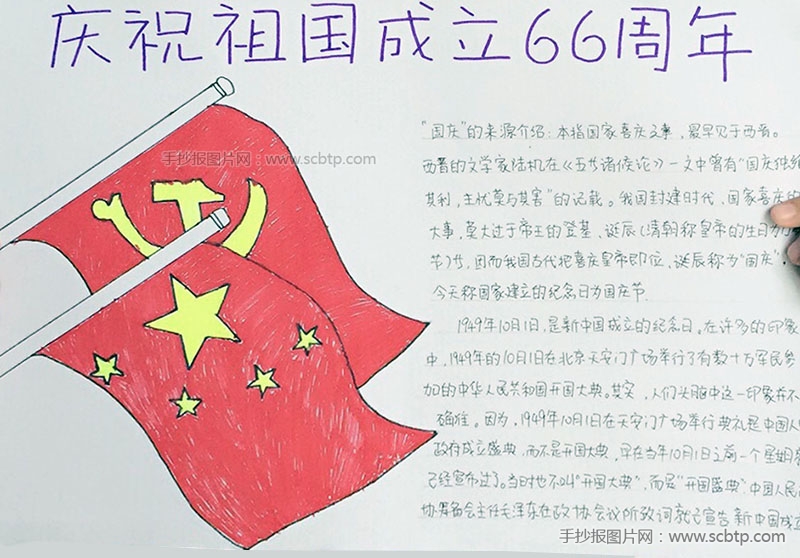 庆祝祖国成立66周年
手抄报图片网:www.scbtp.com
"国庆"的来源介绍:本指国家喜庆之事,最早见于西晋。
西晋的文学家陆机在《五等诸侯论》一文中曾有"国庆独飨
其利,主忧莫与其害"的记载。我国封建时代、国家喜庆的
大事,莫大过于帝王的登基、诞辰(清朝称皇帝的生日为
节)步,因而我国古代把喜庆皇帝即位、诞辰称为"国庆"。
今天称国家建立的纪念日为国庆节.
1949年10月1日,是新中国成立的纪念日。在许多的印象
中,1949年的10月1日在北京天安门广场举行了有数十万军民参
加的中华人民共和国开国大典。其实,人们头脑中这一印象并不
确准。因为,1949年10月1日在天安门广场举行典礼是中国人
政府成立盛典,而不是开国大典,早在当年10月1日之前一个星期
已经宣布过了。当时也不叫"开国大典",而是"开国盛典".中国人民
协筹备会主任毛泽东在政协会议所致词就已宣告新中国成立
手抄报图片网:www.scbtp.com